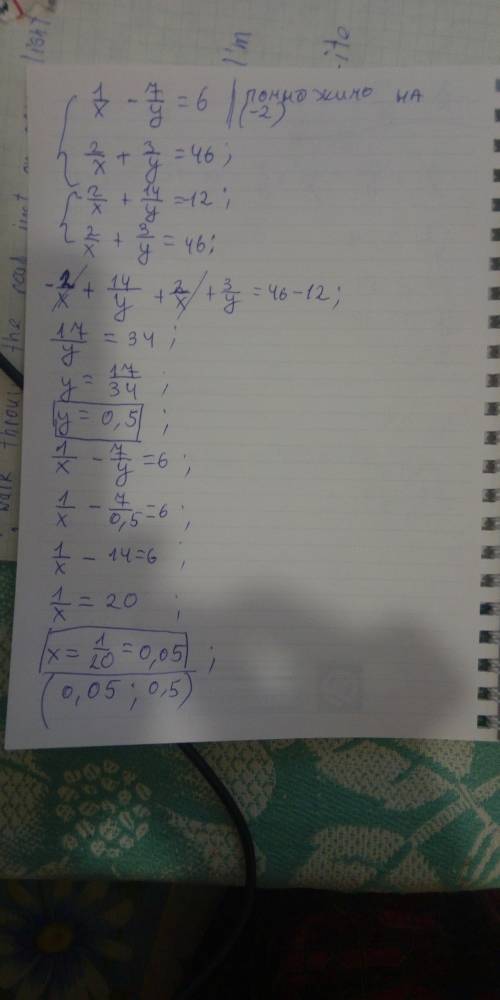 1/x - 7/y = 6 | помножимо на
(-2)
2/x + 3/y = 46;
-2/x + 14/y = -12;
2/x + 3/y = 46;
-2/x + 14/y + 2/x + 3/y = 46-12;
17/y = 34;
y = 17/34;
y = 0,5;
1/x - 7/y = 6;
1/x - 7/0,5 = 6;
1/x - 14 = 6;
1/x = 20;
x = 1/20 = 0,05;
(0,05; 0,5)
the